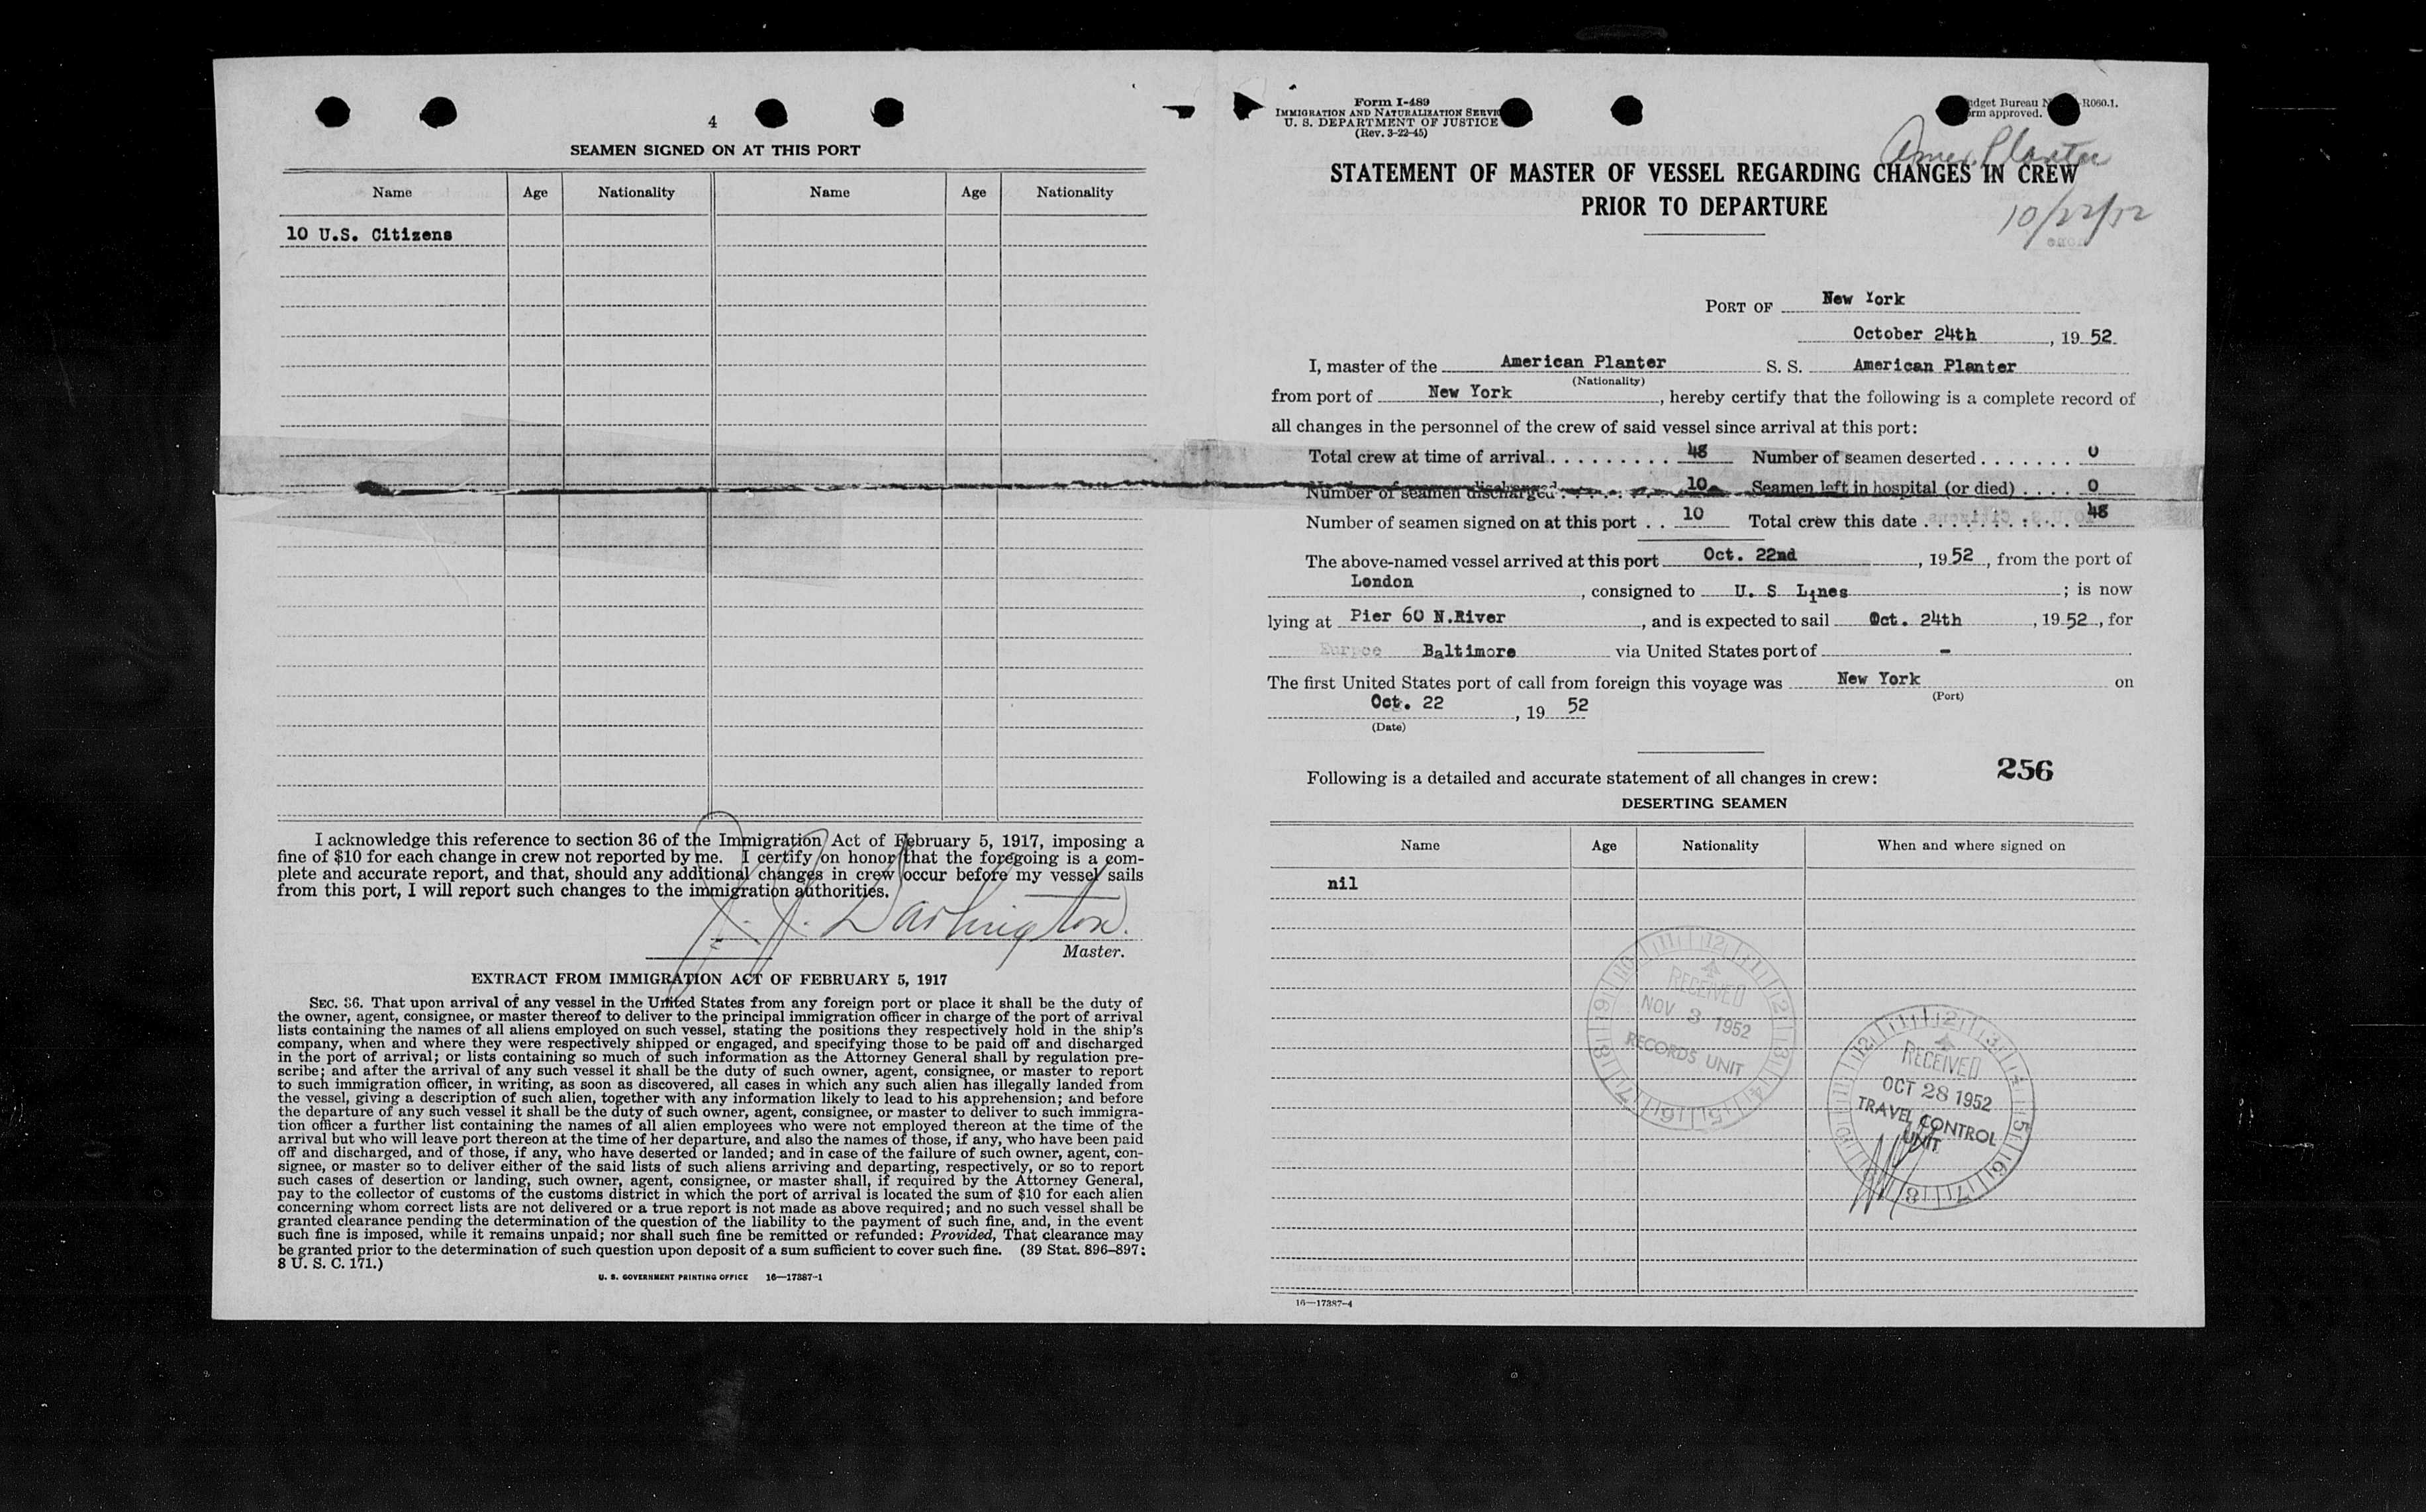 4
SEAMEN SIGNED ON AT THIS PORT
Name Age Nationality Name Age Nationality
10 U.S. Citizens
I acknowledge this reference to section 36 of the Immigration Act of February 5, 1917, imposing a
fine of $10 for each change in crew not reported by me. I certify on honor that the foregoing is a com-
plete and accurate report, and that, should any additional changes in crew occur before my vessel sails
from this port, I will report such changes to the immigration authorities.
J. J. Darlington.
Master.
EXTRACT FROM IMMIGRATION ACT OF FEBRUARY 5, 1917
SEC. 36. That upon arrival of any vessel in the United States from any foreign port or place it shall be the duty of
the owner, agent, consignee, or master thereof to deliver to the principal immigration officer in charge of the port of arrival
lists containing the names of all aliens employed on such vessel, stating the positions they respectively hold in the ship's
company, when and where they were respectively shipped or engaged, and specifying those to be paid off and discharged
in the port of arrival; or lists containing so much of such information as the Attorney General shall by regulation pre-
scribe; and after the arrival of any such vessel it shall be the duty of such owner, agent, consignee, or master to report
to such immigration officer, in writing, as soon as discovered, all cases in which any such alien has illegally landed from
the vessel, giving a description of such alien, together with any information likely to lead to his apprehension; and before
the departure of any such vessel it shall be the duty of such owner, agent, consignee, or master to deliver to such immigra-
tion officer a further list containing the names of all alien employees who were not employed thereon at the time of the
arrival but who will leave port thereon at the time of her departure, and also the names of those, if any, who have been paid
off and discharged, and of those, if any, who have deserted or landed; and in case of the failure of such owner, agent, con-
signee, or master so to deliver either of the said lists of such aliens arriving and departing, respectively, or so to report
such cases of desertion or landing, such owner, agent, consignee, or master shall, if required by the Attorney General,
pay to the collector of customs of the customs district in which the port of arrival is located the sum of $10 for each alien
concerning whom correct lists are not delivered or a true report is not made as above required; and no such vessel shall be
granted clearance pending the determination of the question of the liability to the payment of such fine, and, in the event
such fine is imposed, while it remains unpaid; nor shall such fine be remitted or refunded: Provided, That clearance may
be granted prior to the determination of such question upon deposit of a sum sufficient to cover such fine. (39 Stat. 896–897;
8 U. S. C. 171.)
U. S. GOVERNMENT PRINTING OFFICE 16—17387-1
Form I-489
IMMIGRATION AND NATURALIZATION SERVI
U. S. DEPARTMENT OF JUSTICE
(Rev. 3-22-45)
dget Bureau N -R060.1.
rm approved.
Amer. Planter
STATEMENT OF MASTER OF VESSEL REGARDING CHANGES IN CREW
PRIOR TO DEPARTURE
10/22/52
PORT OF New York
October 24th, 19 52
I, master of the American Planter S. S. American Planter
(Nationality)
from port of New York, hereby certify that the following is a complete record of
all changes in the personnel of the crew of said vessel since arrival at this port:
Total crew at time of arrival 48 Number of seamen deserted 0
Number of seamen discharged 10 Seamen left in hospital (or died) 0
Number of seamen signed on at this port 10 Total crew this date 48
The above-named vessel arrived at this port Oct. 22nd, 19 52, from the port of
London, consigned to U. S Lines; is now
lying at Pier 60 N.River, and is expected to sail Oct. 24th, 19 52, for
Europe Baltimore via United States port of -
The first United States port of call from foreign this voyage was New York on
(Port)
Oct. 22, 19 52
(Date)
256
Following is a detailed and accurate statement of all changes in crew:
DESERTING SEAMEN
Name Age Nationality When and where signed on
nil
RECEIVED
NOV 3 1952
RECORDS UNIT
RECEIVED
OCT 28 1952
TRAVEL CONTROL
UNIT
16—17387-4